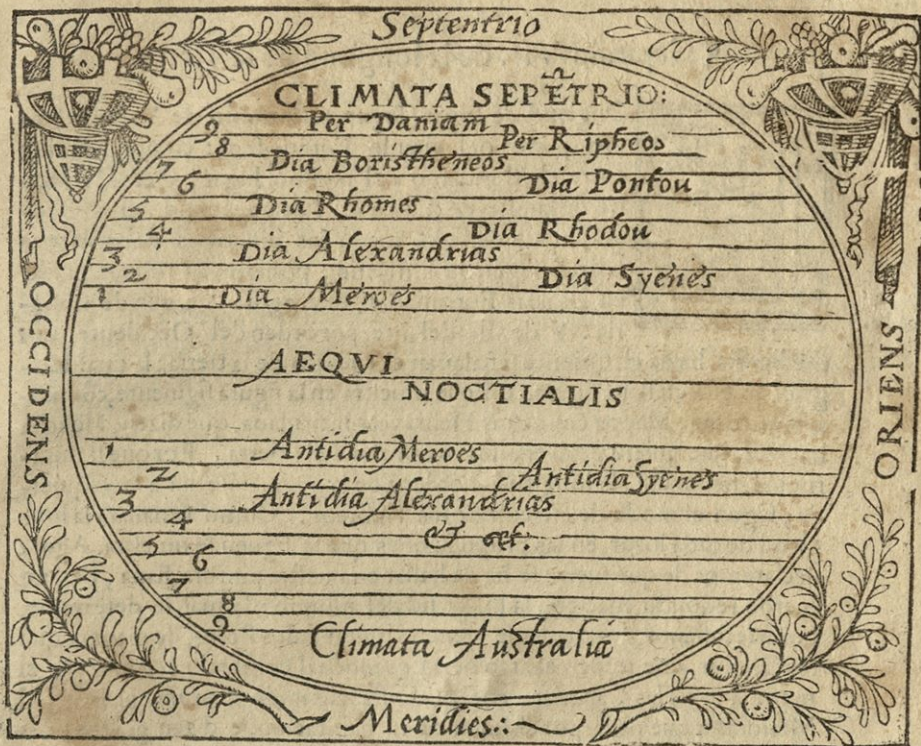 Septentrio
CLIMATA SEPẼTRIO:
9 Per Daniam
8 Per Ripheos
7 Dia Boristheneos
6 Dia Pontou
5 Dia Rhomes
4 Dia Rhodou
3 Dia Alexandrias
2 Dia Syenes
1 Dia Meroes
OCCIDENS
ORIENS
AEQVI
NOCTIALIS
1 Antidia Meroes
2 Antidia Syenes
3 Antidia Alexandrias
4
& cet:
5
6
7
8
9
Climata Australia
Meridies: